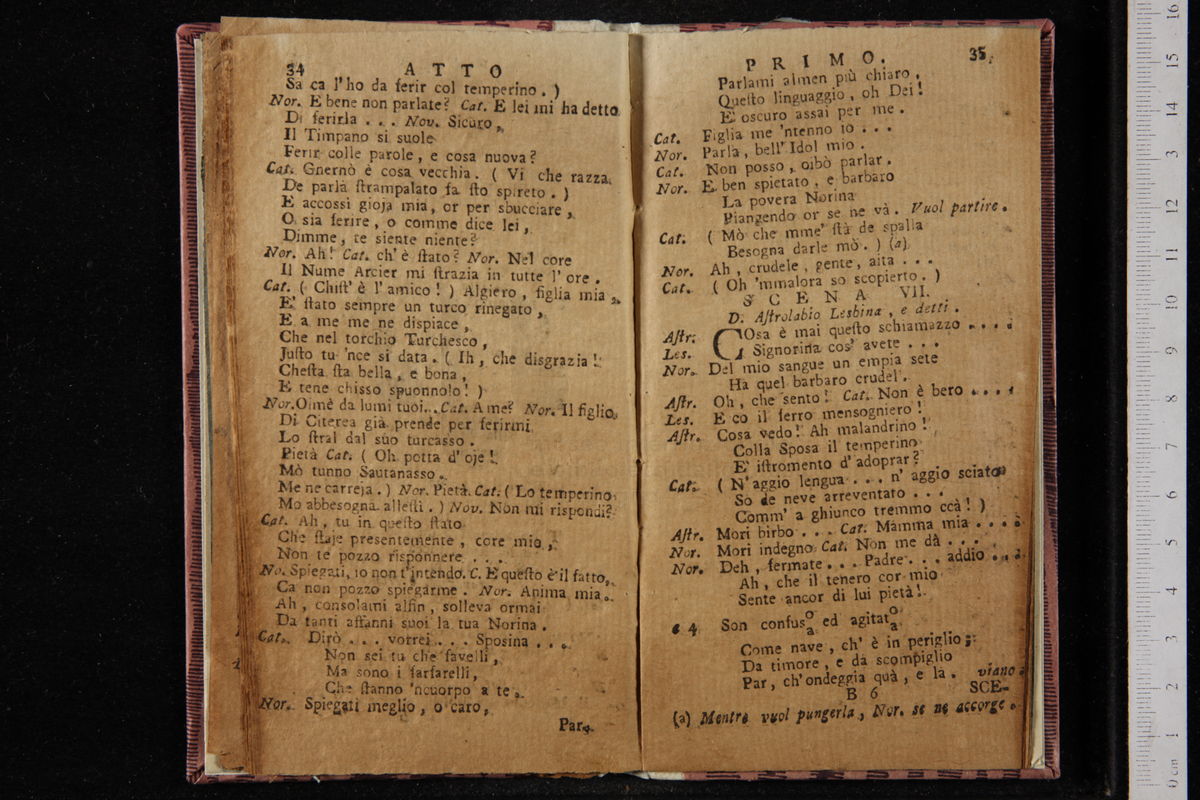 34 ATTO
Sa ca l'ho da ferir col temperino. )
Nor. E bene non parlate? Cat. E lei mi ha detto
Di ferirla . . . Nov. Sicuro,
Il Timpano si suole
Ferir colle parole, e cosa nuova?
Cat. Gnernò è cosa vecchia. ( Vi che razza
De parlà ſtrampalato fa ſto spireto. )
E accossì gioja mia, or per sbucciare,
O sia ferire, o comme dice lei,
Dimme, te siente niente?
Nor. Ah! Cat. ch'è ſtato? Nor. Nel core
Il Nume Arcier mi ſtrazia in tutte l'ore.
Cat. ( Chiſt'è l'amico! ) Algiero, figlia mia,
E' ſtato sempre un turco rinegato,
E a me me ne dispiace,
Che nel torchio Turchesco,
Juſto tu 'nce si data. ( Ih, che disgrazia!
Cheſta ſta bella, e bona,
E tene chisso spuonnolo! )
Nor. Oimè da lumi tuoi... Cat. A me? Nor. Il figlio
Di Citerea già prende per ferirmi
Lo ſtral dal suo turcasso.
Pietà Cat. ( Oh potta d'oje!
Mò tunno Sautanasso.
Me ne carreja. ) Nor. Pietà. Cat. ( Lo temperino
Mo abbesogna alleſti. ) Nov. Non mi rispondi?
Cat. Ah, tu in queſto ſtato
Che ſtaje presentemente, core mio,
Non te pozzo risponnere . . .
No. Spiegati, io non t'intendo. C. E queſto è il fatto,
Ca non pozzo spiegarme. Nor. Anima mia.
Ah, consolami alfin, solleva ormai
Da tanti affanni suoi la tua Norina.
Cat. Dirò . . . vorrei . . . Sposina . . .
Non sei tu che favelli,
Ma sono i farfarelli,
Che ſtanno 'ncuorpo a te.
Nor. Spiegati meglio, o caro,
Par.
PRIMO. 35
Parlami almen più chiaro,
Queſto linguaggio, oh Dei!
E' oscuro assai per me.
Cat. Figlia me 'ntenno io . . .
Nor. Parla, bell'Idol mio.
Cat. Non posso, oibò parlar.
Nor. E ben spietato, e barbaro
La povera Norina
Piangendo or se ne và. Vuol partire.
Cat. ( Mò che mme' ſtà de spalla
Besogna darle mò. ) (a)
Nor. Ah, crudele, gente, aita . . .
Cat. ( Oh 'mmalora so scopierto. )
SCENA VII.
D. Aſtrolabio Lesbina, e detti.
Aſtr. COsa è mai queſto schiamazzo . . . .
Les. Signorina cos' avete . . .
Nor. Del mio sangue un empia sete
Ha quel barbaro crudel.
Aſtr. Oh, che sento! Cat. Non è bero . . . .
Les. E co il ferro mensogniero!
Aſtr. Cosa vedo! Ah malandrino!
Colla Sposa il temperino
E' iſtromento d'adoprar?
Cat. ( N'aggio lengua . . . n'aggio sciato
So de neve arreventato . . .
Comm'a ghiunco tremmo ccà! )
Aſtr. Mori birbo . . . Cat. Mamma mia . . . .
Nor. Mori indegno Cat. Non me dà . . .
Nor. Deh, fermate . . . Padre . . . addio . . .
Ah, che il tenero cor mio
Sente ancor di lui pietà!
a 4 Son confuso/a ed agitato/a
Come nave, ch'è in periglio;
Da timore, e da scompiglio
Par, ch'ondeggia quà, e là. viano.
B 6 SCE-
(a) Mentre vuol pungerla, Nor. se ne accorge.